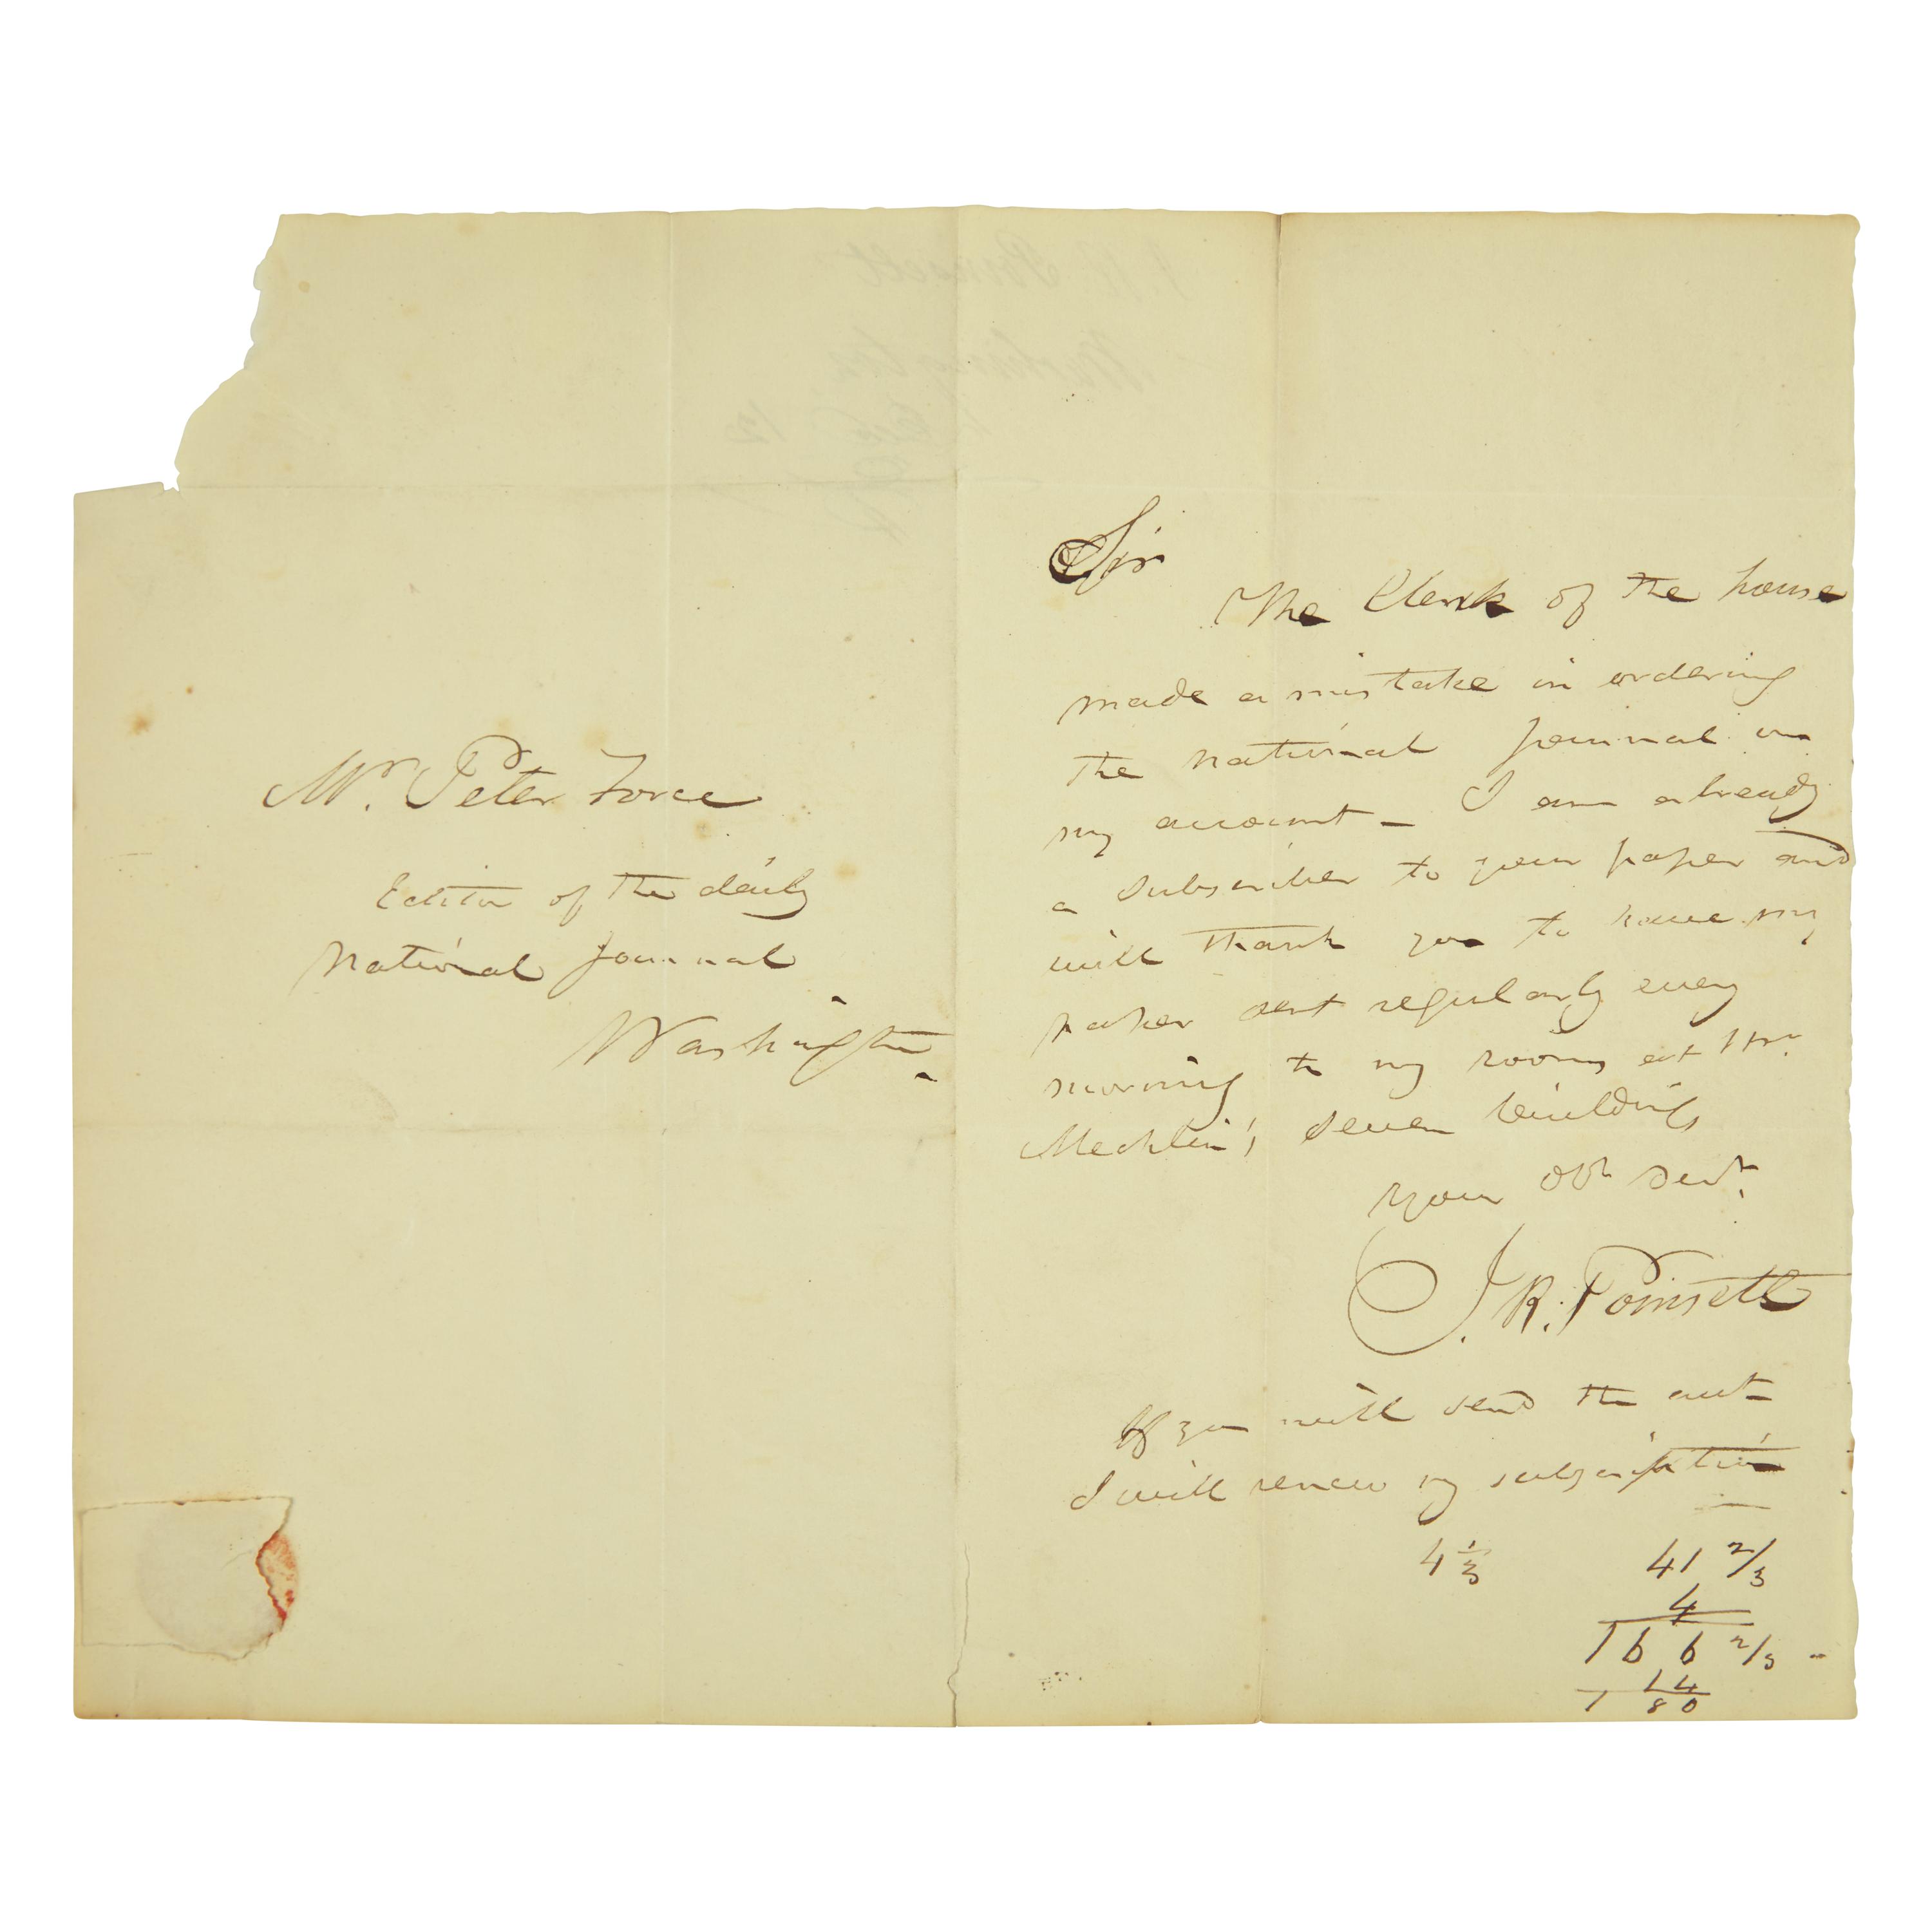 Mr. Peter Force
Editor of the daily
National Journal
Washington
Sir
The Clerk of the house
made a mistake in ordering
the National Journal on
my account - I am already
a subscriber to your paper and
will thank you to have my
paper sent regularly every
morning to my rooms at Mr.
Mechlin's seven buildings
your obt servt.
J. R. Poinsett
If you will send the acct
I will renew my subscription
4 1/3
41 2/3
4
166 2/3
14
180